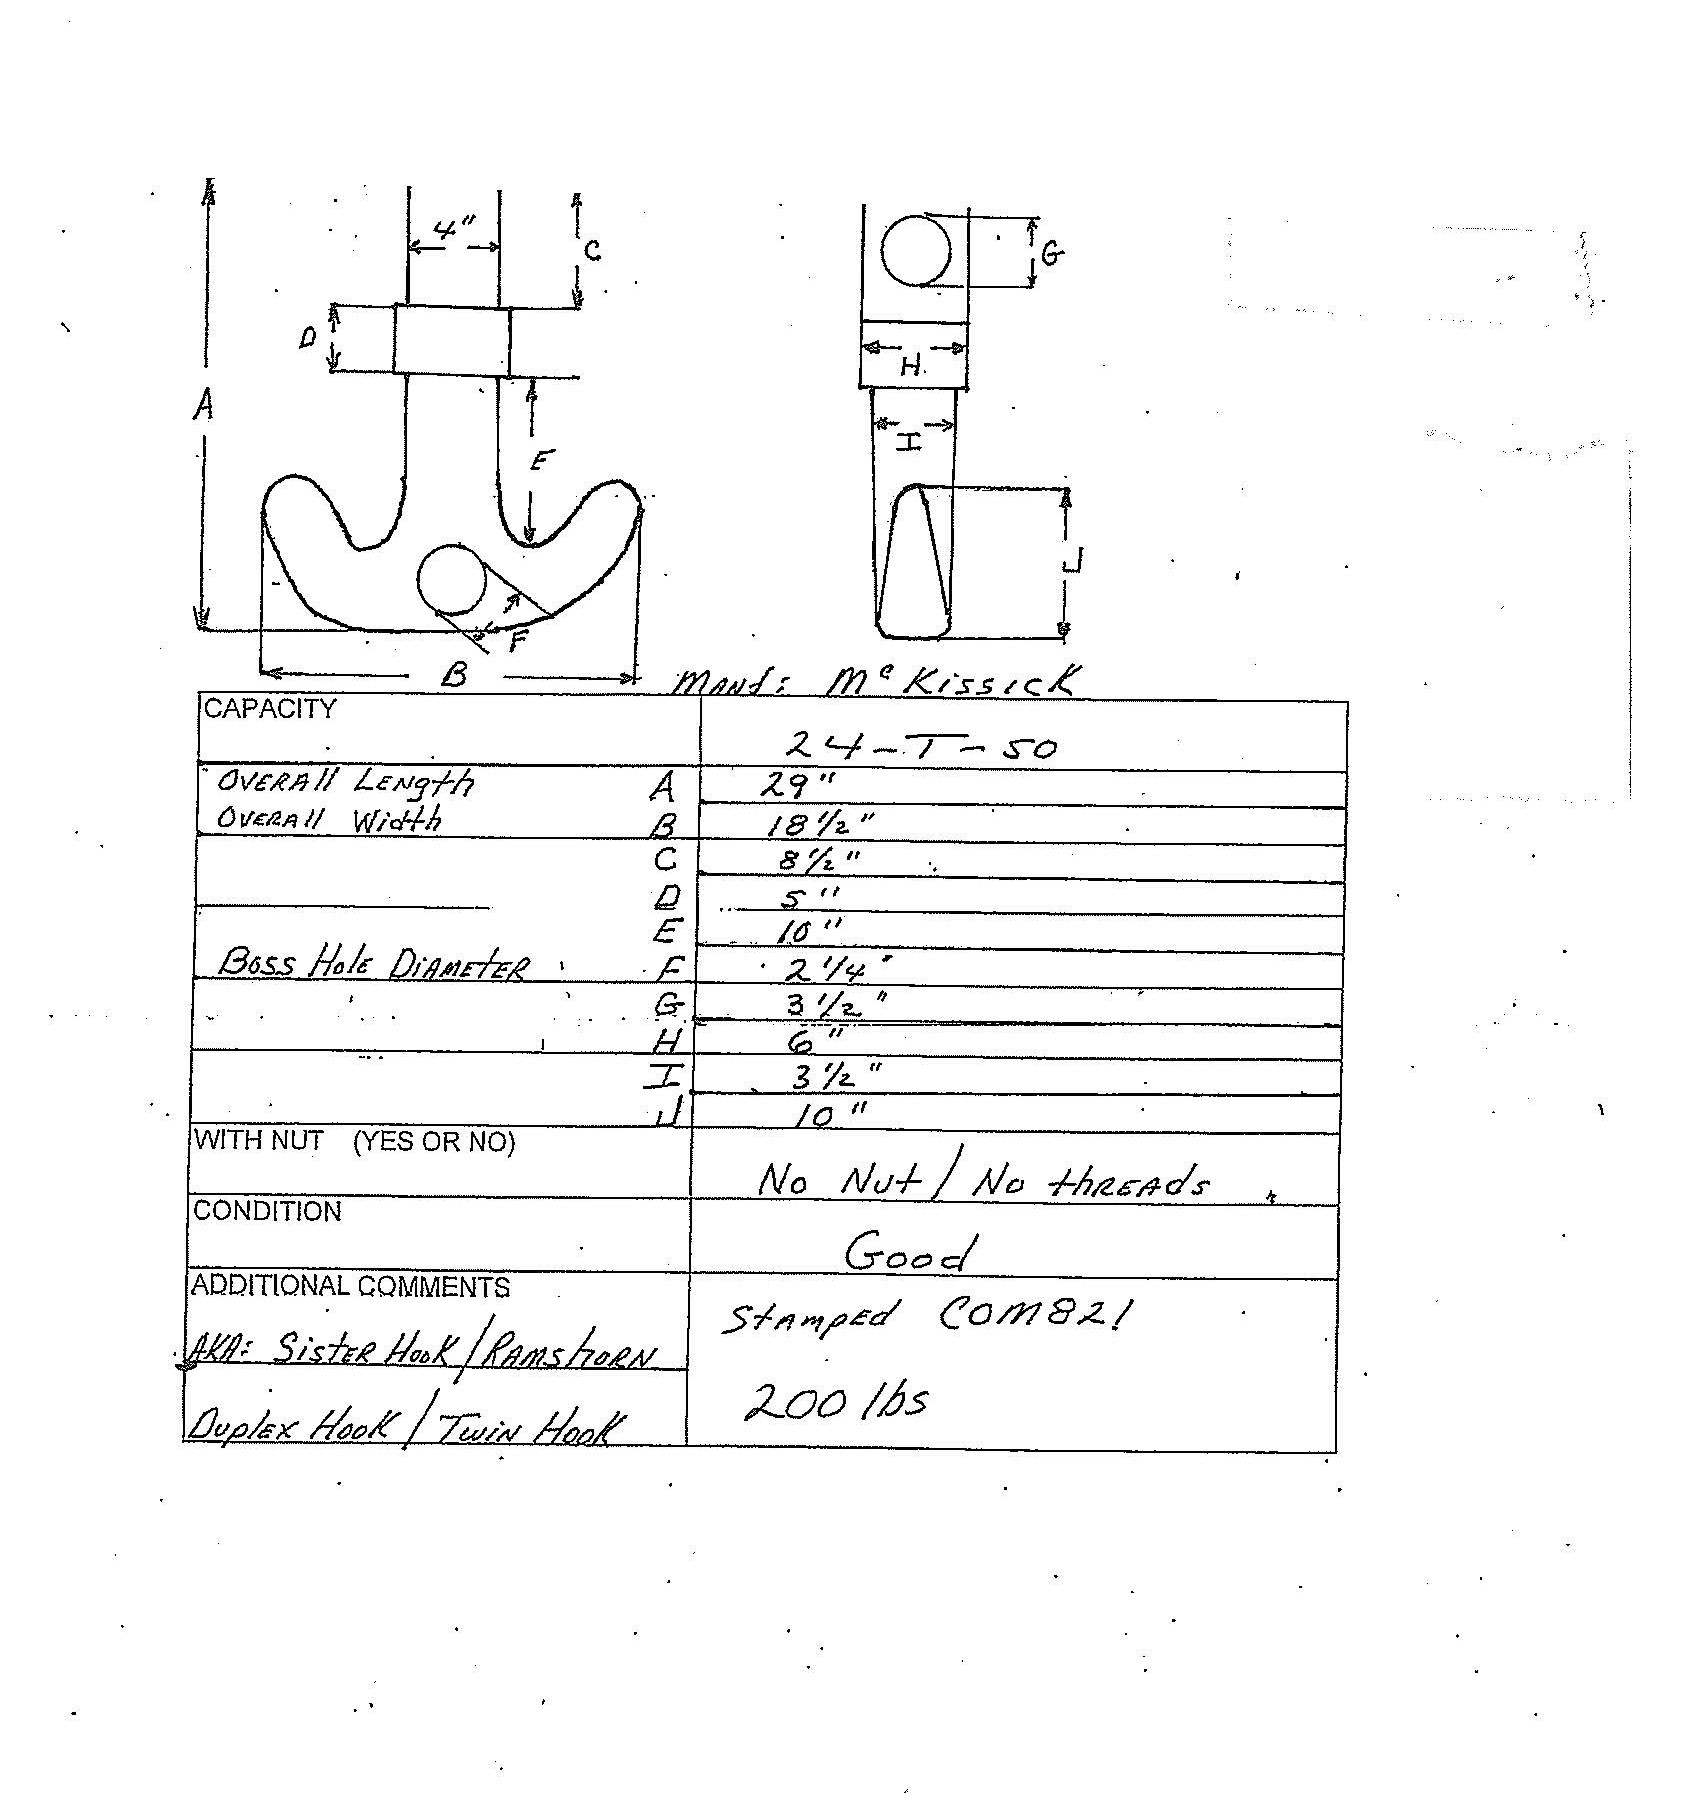 4"
C
G
D
H
A
I
E
J
F
B
Manf: McKissick
CAPACITY
24-T-50
OVERAll LENgth A 29"
OVERAll Width B 18 1/2"
C 8 1/2"
D 5"
E 10"
Boss HolE DiAMEtER F 2 1/4"
G 3 1/2"
H 6"
I 3 1/2"
J 10"
WITH NUT (YES OR NO)
No Nut / No thREAds
CONDITION
Good
ADDITIONAL COMMENTS
StAMpEd COM821
AKA: SistER HooK / RAMshoRN
200 lbs
DuplEx HooK / TwiN HooK